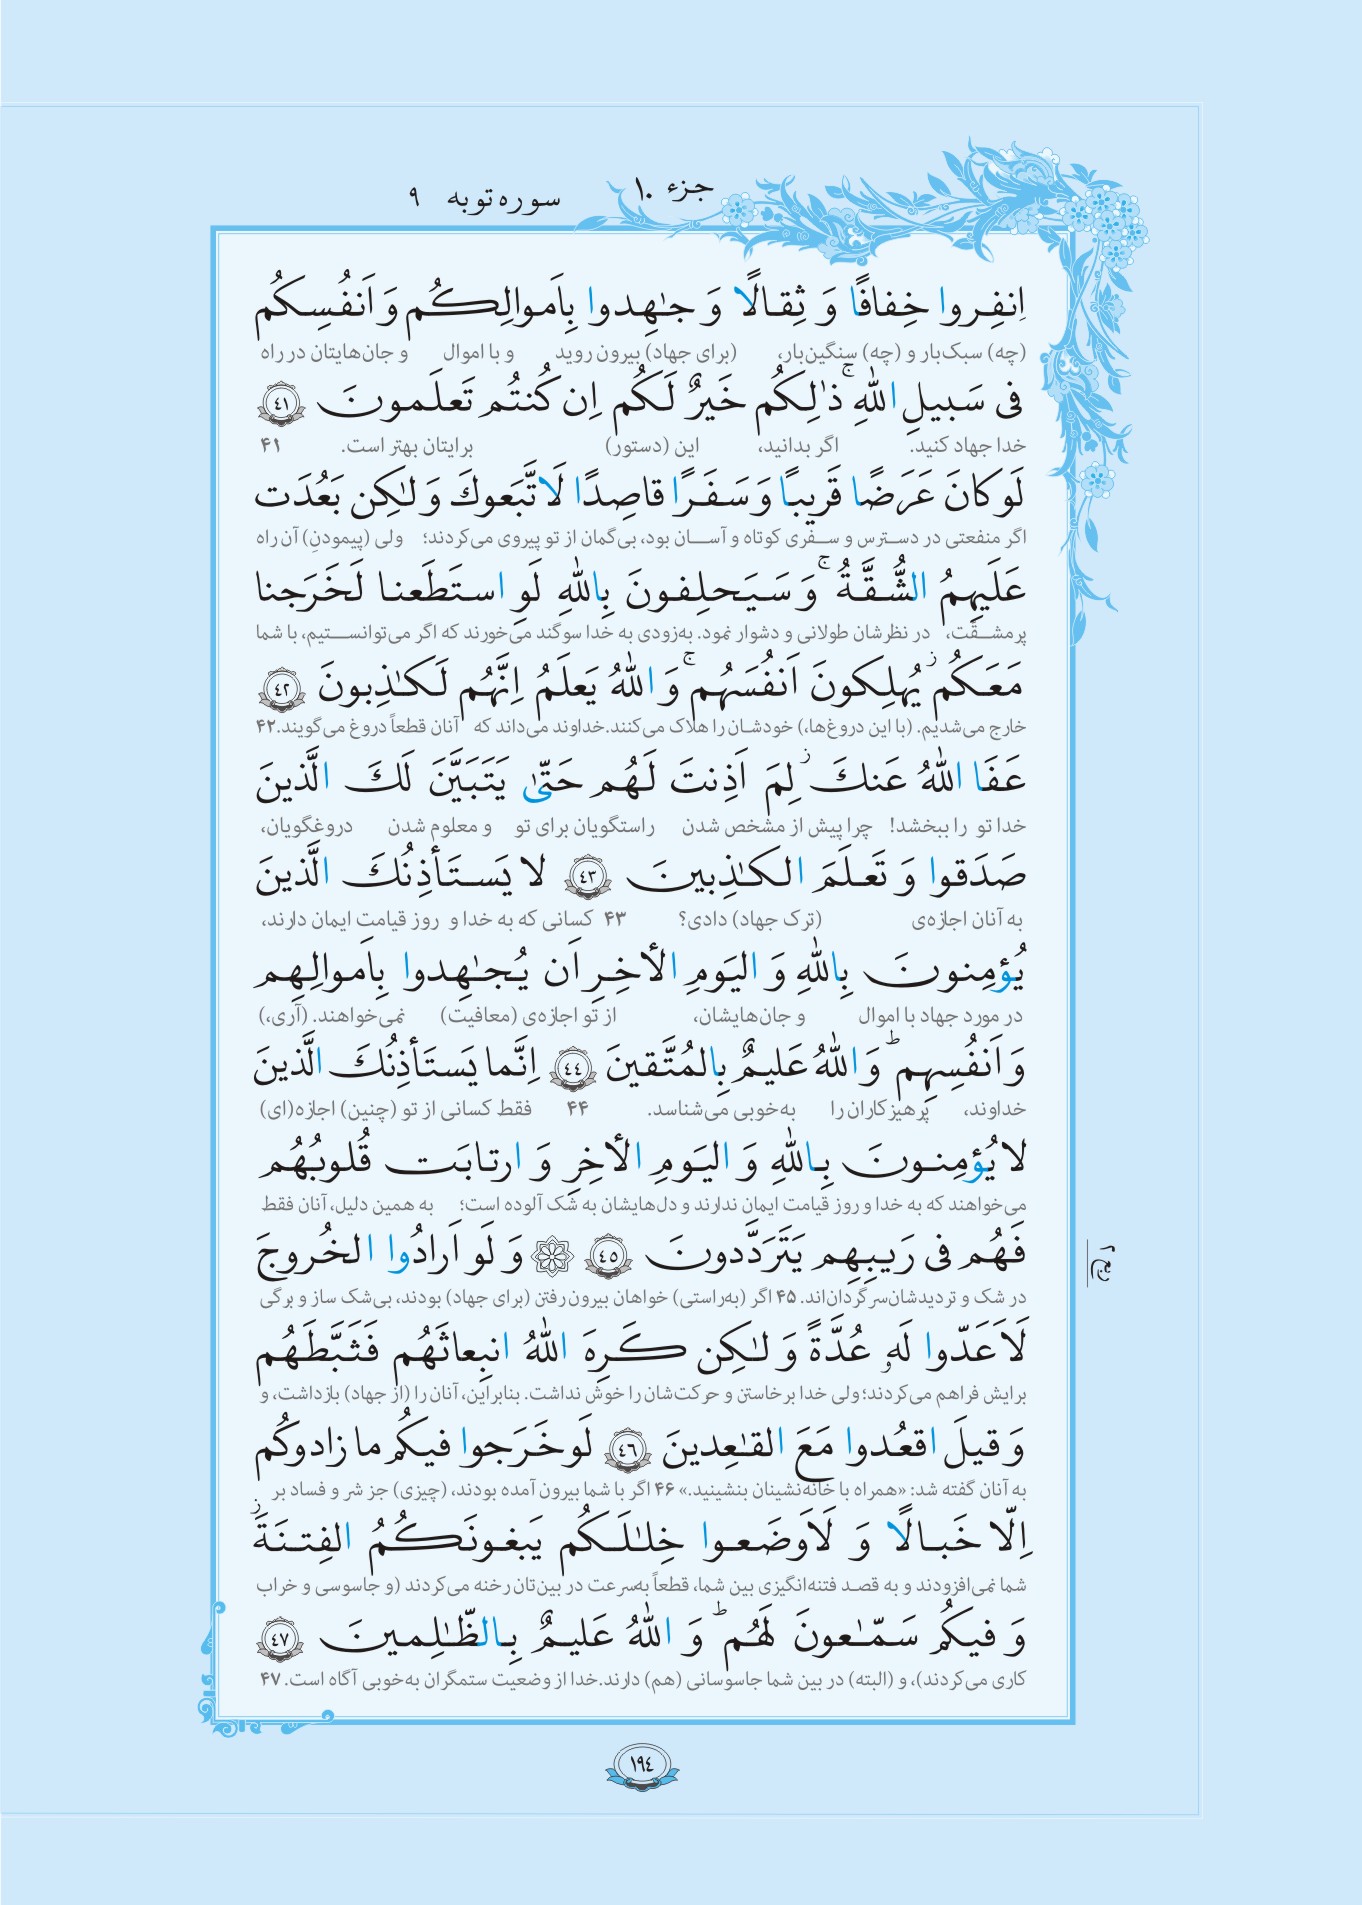 جزء ۱۰
سوره توبه ۹
اِنفِروا خِفافًا وَ ثِقالًا وَ جـٰهِدوا بِاَموالِكُم وَ اَنفُسِكُم
(چه) سبک‌بار و (چه) سنگین‌بار، (برای جهاد) بیرون روید و با اموال و جان‌هایتان در راه
فی سَبیلِ اللّٰهِ ۚ ذٰلِكُم خَیرٌ لَكُم اِن كُنتُم تَعلَمونَ ﴿٤١﴾
خدا جهاد کنید. اگر بدانید، این (دستور) برایتان بهتر است. ۴۱
لَو كانَ عَرَضًا قَریبًا وَ سَفَرًا قاصِدًا لَاتَّبَعوكَ وَ لـٰكِن بَعُدَت
اگر منفعتی در دسترس و سفری کوتاه و آسان بود، بی‌گمان از تو پیروی می‌کردند؛ ولی (پیمودنِ) آن راه
عَلَیهِمُ الشُّقَّةُ ۚ وَ سَیَحلِفونَ بِاللّٰهِ لَوِ استَطَعنا لَخَرَجنا
پرمشقّت، در نظرشان طولانی و دشوار نمود. به‌زودی به خدا سوگند می‌خورند که اگر می‌توانستیم، با شما
مَعَكُم ز یُهلِكونَ اَنفُسَهُم ۚ وَ اللّٰهُ یَعلَمُ اِنَّهُم لَكـٰذِبونَ ﴿٤٢﴾
خارج می‌شدیم. (با این دروغ‌ها،) خودشان را هلاک می‌کنند. خداوند می‌داند که آنان قطعاً دروغ می‌گویند. ۴۲
عَفَا اللّٰهُ عَنكَ ز لِمَ اَذِنتَ لَهُم حَتّیٰ یَتَبَیَّنَ لَكَ الَّذینَ
خدا تو را ببخشد! چرا پیش از مشخص شدن راستگویان برای تو و معلوم شدن دروغگویان،
صَدَقوا وَ تَعلَمَ الكـٰذِبینَ ﴿٤٣﴾ لا یَستَأذِنُكَ الَّذینَ
به آنان اجازه‌ی (ترک جهاد) دادی؟ ۴۳ کسانی که به خدا و روز قیامت ایمان دارند،
یُؤمِنونَ بِاللّٰهِ وَ الیَومِ الأخِرِ اَن یُجـٰهِدوا بِاَموالِهِم
در مورد جهاد با اموال و جان‌هایشان، از تو اجازه‌ی (معافیت) نمی‌خواهند. (آری،)
وَ اَنفُسِهِم ؕ وَ اللّٰهُ عَلیمٌ بِالمُتَّقینَ ﴿٤٤﴾ اِنَّما یَستَأذِنُكَ الَّذینَ
خداوند، پرهیزکاران را به‌خوبی می‌شناسد. ۴۴ فقط کسانی از تو (چنین) اجازه(ای)
لا یُؤمِنونَ بِاللّٰهِ وَ الیَومِ الأخِرِ وَ ارتابَت قُلوبُهُم
می‌خواهند که به خدا و روز قیامت ایمان ندارند و دل‌هایشان به شک آلوده است؛ به همین دلیل، آنان فقط
فَهُم فی رَیبِهِم یَتَرَدَّدونَ ﴿٤٥﴾ ۞ وَ لَو اَرادُوا الخُروجَ
در شک و تردیدشان سرگردان‌اند. ۴۵ اگر (به‌راستی) خواهان بیرون رفتن (برای جهاد) بودند، بی‌شک ساز و برگی
لَاَعَدّوا لَهٗ عُدَّةً وَ لـٰكِن كَرِهَ اللّٰهُ انبِعاثَهُم فَثَبَّطَهُم
برایش فراهم می‌کردند؛ ولی خدا برخاستن و حرکت‌شان را خوش نداشت. بنابراین، آنان را (از جهاد) بازداشت، و
وَ قیلَ اقعُدوا مَعَ القـٰعِدینَ ﴿٤٦﴾ لَو خَرَجوا فیكُم ما زادوكُم
به آنان گفته شد: «همراه با خانه‌نشینان بنشینید.» ۴۶ اگر با شما بیرون آمده بودند، (چیزی) جز شر و فساد بر
اِلّا خَبالًا وَ لَاَوضَعوا خِلـٰلَكُم یَبغونَكُمُ الفِتنَةَ ز
شما نمی‌افزودند و به قصد فتنه‌انگیزی بین شما، قطعاً به‌سرعت در بین‌تان رخنه می‌کردند (و جاسوسی و خراب
وَ فیكُم سَمّـٰعونَ لَهُم ؕ وَ اللّٰهُ عَلیمٌ بِالظّـٰلِمینَ ﴿٤٧﴾
کاری می‌کردند)، و (البته) در بین شما جاسوسانی (هم) دارند. خدا از وضعیت ستمگران به‌خوبی آگاه است. ۴۷
ربع ۲
١٩٤